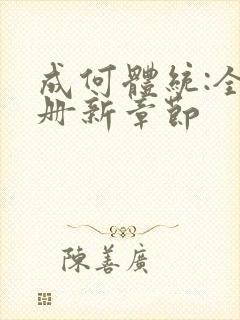 成何體統:全
册新章節
陳善廣